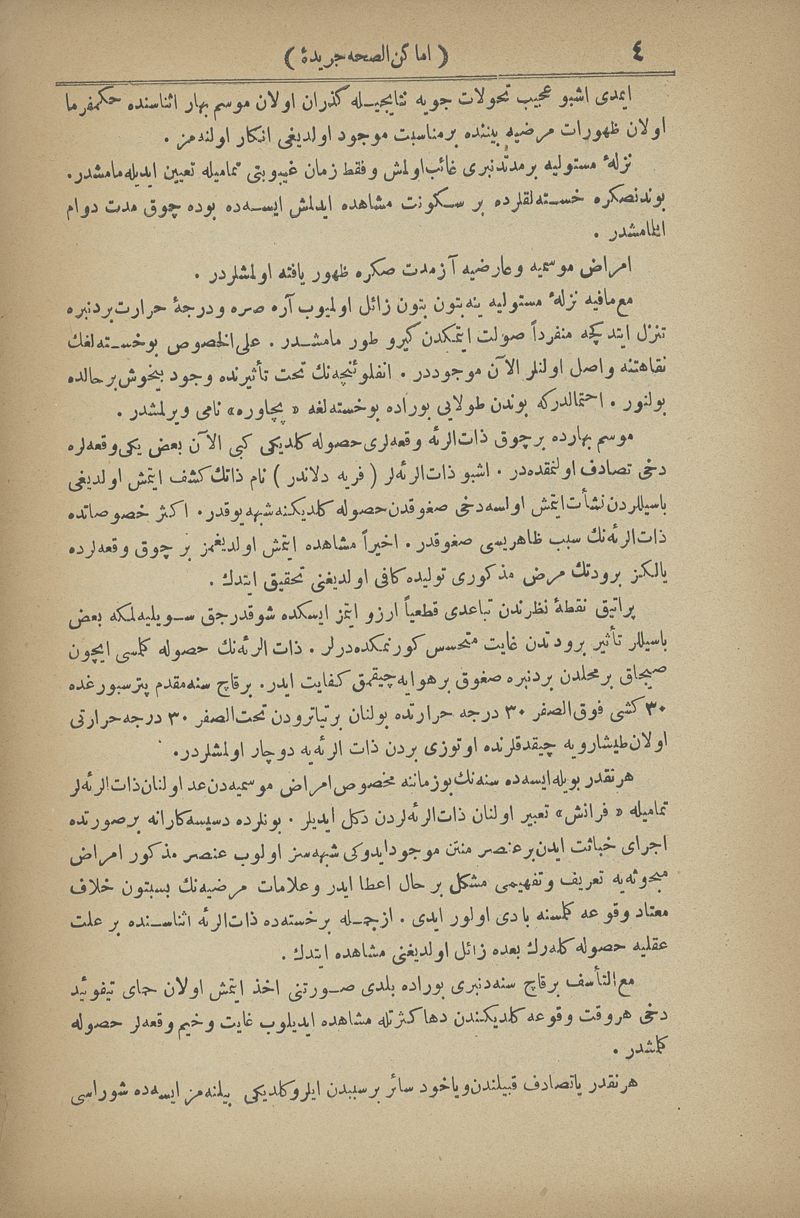 ٤
( اماکن الصحه جریدهٔ )
ایمدی اشبو عجیب تحولات جویه نتایجیـله کذران اولان موسم بهار اثناسنده حکمفرما
اولان ظهورات مرضیه بیننده برمناسبت موجود اولدیغی انکار اولنه‌مز .
نزلهٔ مستولیه برمدتدنبری غائب‌اولمش وفقط زمان غیبوبتی تمامیله تعیین ایدیله‌مامشدر.
بوندنصکره خسـته‌لقلرده بر سـکونت مشاهده ایدلمش ایسـه‌ده بوده چوق مدت دوام
اتمامشدر .
امراض موسمیه وعارضیه آز مدت صکره ظهور یافته اولمشلردر .
مع‌مافیه نزلهٔ مستولیه ینه‌بتون بتون زائل اولمیوب آره صره ودرجهٔ حرارت‌بردنبره
تنزل ایتدکجه منفرداً صولت ایتمکدن‌کیرو طور مامشـدر . علی‌الخصوص بوخسـته‌لغك
نقاهتنه واصل اولنلر الآن موجوددر . انفلوئنچه‌نك تحت تأثیرنده وجود بیخوش‌برحالده
بولنور . احتمالدرکه بوندن طولایی بوراده بوخسته‌لغه « پچاوره» نامی ویرلمشدر .
موسم بهارده برچوق ذات‌الرئه وقعه‌لری حصوله کلدیکی کبی الآن بعض یکی‌وقعه‌لره
دخی تصادف اولنمقده‌در . اشبو ذات‌الرئه‌لر ( فریه دلاندر ) نام ذاتك کشف ایتمش اولدیغی
باسیللردن نشأت‌ایتمش اولسه‌دخی صغوقدن حصوله کلدیکنه شبهه یوقدر . اکثر خصوصاتده
ذات‌الرئه‌نك سبب ظاهریسی صغوقدر . اخیراً مشاهده ایتمش اولدیغمز بر چوق وقعه‌لرده
یالکز برودتك مرض مذکوری تولیده کافی اولدیغنی تحقیق ایتدك .
پراتیق نقطهٔ نظرندن تباعدی قطعیاً ارزو ایتمز ایسکده شوقدرجق سـویلیه‌لمکه بعض
باسیللر تأثیر برودتدن غایت متحسس کورنمکده‌درلر . ذات الرئه‌نك حصوله کلمسی ایچون
صیجاق برمحلدن بردنبره صغوق برهوایه‌چیقمق کفایت ایدر. برقاچ سنه‌مقدم پترسبورغده
٣٠ کشی فوق‌الصفر ٣٠ درجه حرارتده بولنان برتیاترودن تحت‌الصفر ٣٠ درجه‌حرارتی
اولان‌طیشارویه چیقدقلرنده اوتوزی بردن ذات الرئه‌یه دوچار اولمشلردر.
هرنقدر بویله‌ایسه‌ده سنه‌نك‌بوزماننه مخصوص‌امراض موسمیه‌دن‌عد اولنان‌ذات‌الرئه‌لر
تمامیله « فرانش» تعبیر اولنان ذات‌الرئه‌لردن دکل ایدیلر . بونلرده دسیسه‌کارانه برصورتده
اجرای خباثت ایدن‌برعنصر منتن موجودایدوکی شبهه‌سز اولوب عنصر مذکور امراض
مبحوثه‌یه تعریف وتفهیمی مشکل بر حال اعطا ایدر وعلامات مرضیه‌نك بسبتون خلاف
معتاد وقوعه کلمسنه بادی اولور ایدی . ازجـمله برخسته‌ده ذات‌الرئه اثناسـنده بر علت
عقلیه حصوله کله‌رك بعده زائل اولدیغنی مشاهده ایتدك .
مع‌التأسف برقاچ سنه‌دنبری بوراده بلدی صـورتنی اخذ ایتمش اولان حمای تیفوئید
دخی هروقت وقوعه کلدیکندن دهاکثرتله مشاهده ایدیلوب غایت وخیم وقعه‌لر حصوله
کلمشدر .
هرنقدر یاتصادف قبیلندن‌ویاخود سائر برسببدن ایلروکلدیکی بیلنه‌مز ایسه‌ده شوراسی